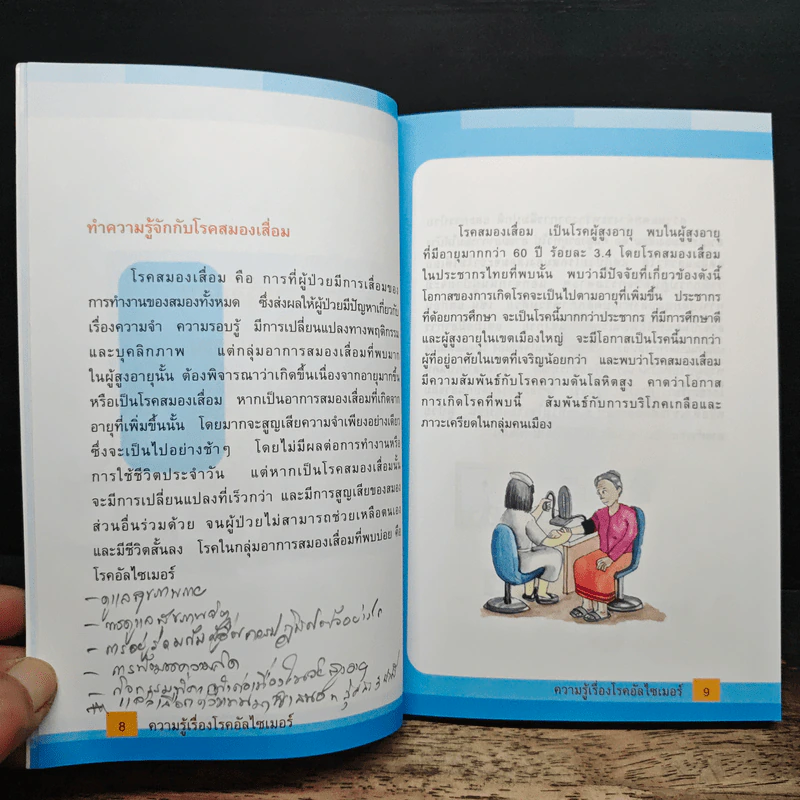 ทำความรู้จักกับโรคสมองเสื่อม
โรคสมองเสื่อม คือ การที่ผู้ป่วยมีการเสื่อมของ
การทำงานของสมองทั้งหมด ซึ่งส่งผลให้ผู้ป่วยมีปัญหาเกี่ยวกับ
เรื่องความจำ ความรอบรู้ มีการเปลี่ยนแปลงทางพฤติกรรม
และบุคลิกภาพ แต่กลุ่มอาการสมองเสื่อมที่พบมาก
ในผู้สูงอายุนั้น ต้องพิจารณาว่าเกิดขึ้นเนื่องจากอายุมากขึ้น
หรือเป็นโรคสมองเสื่อม หากเป็นอาการสมองเสื่อมที่เกิดจาก
อายุที่เพิ่มขึ้นนั้น โดยมากจะสูญเสียความจำเพียงอย่างเดียว
ซึ่งจะเป็นไปอย่างช้าๆ โดยไม่มีผลต่อการทำงานหรือ
การใช้ชีวิตประจำวัน แต่หากเป็นโรคสมองเสื่อมนั้น
จะมีการเปลี่ยนแปลงที่เร็วกว่า และมีการสูญเสียของสมอง
ส่วนอื่นร่วมด้วย จนผู้ป่วยไม่สามารถช่วยเหลือตนเอง
และมีชีวิตสั้นลง โรคในกลุ่มอาการสมองเสื่อมที่พบบ่อย คือ
โรคอัลไซเมอร์
- ดูแลสุขภาพกาย
- การดูแลสุขภาพจิต
8 ความรู้เรื่องโรคอัลไซเมอร์
โรคสมองเสื่อม เป็นโรคผู้สูงอายุ พบในผู้สูงอายุ
ที่มีอายุมากกว่า 60 ปี ร้อยละ 3.4 โดยโรคสมองเสื่อม
ในประชากรไทยที่พบนั้น พบว่ามีปัจจัยที่เกี่ยวข้องดังนี้
โอกาสของการเกิดโรคจะเป็นไปตามอายุที่เพิ่มขึ้น ประชากร
ที่ด้อยการศึกษา จะเป็นโรคนี้มากกว่าประชากร ที่มีการศึกษาดี
และผู้สูงอายุในเขตเมืองใหญ่ จะมีโอกาสเป็นโรคนี้มากกว่า
ผู้ที่อยู่อาศัยในเขตที่เจริญน้อยกว่า และพบว่าโรคสมองเสื่อม
มีความสัมพันธ์กับโรคความดันโลหิตสูง คาดว่าโอกาส
การเกิดโรคที่พบนี้ สัมพันธ์กับการบริโภคเกลือและ
ภาวะเครียดในกลุ่มคนเมือง
ความรู้เรื่องโรคอัลไซเมอร์ 9